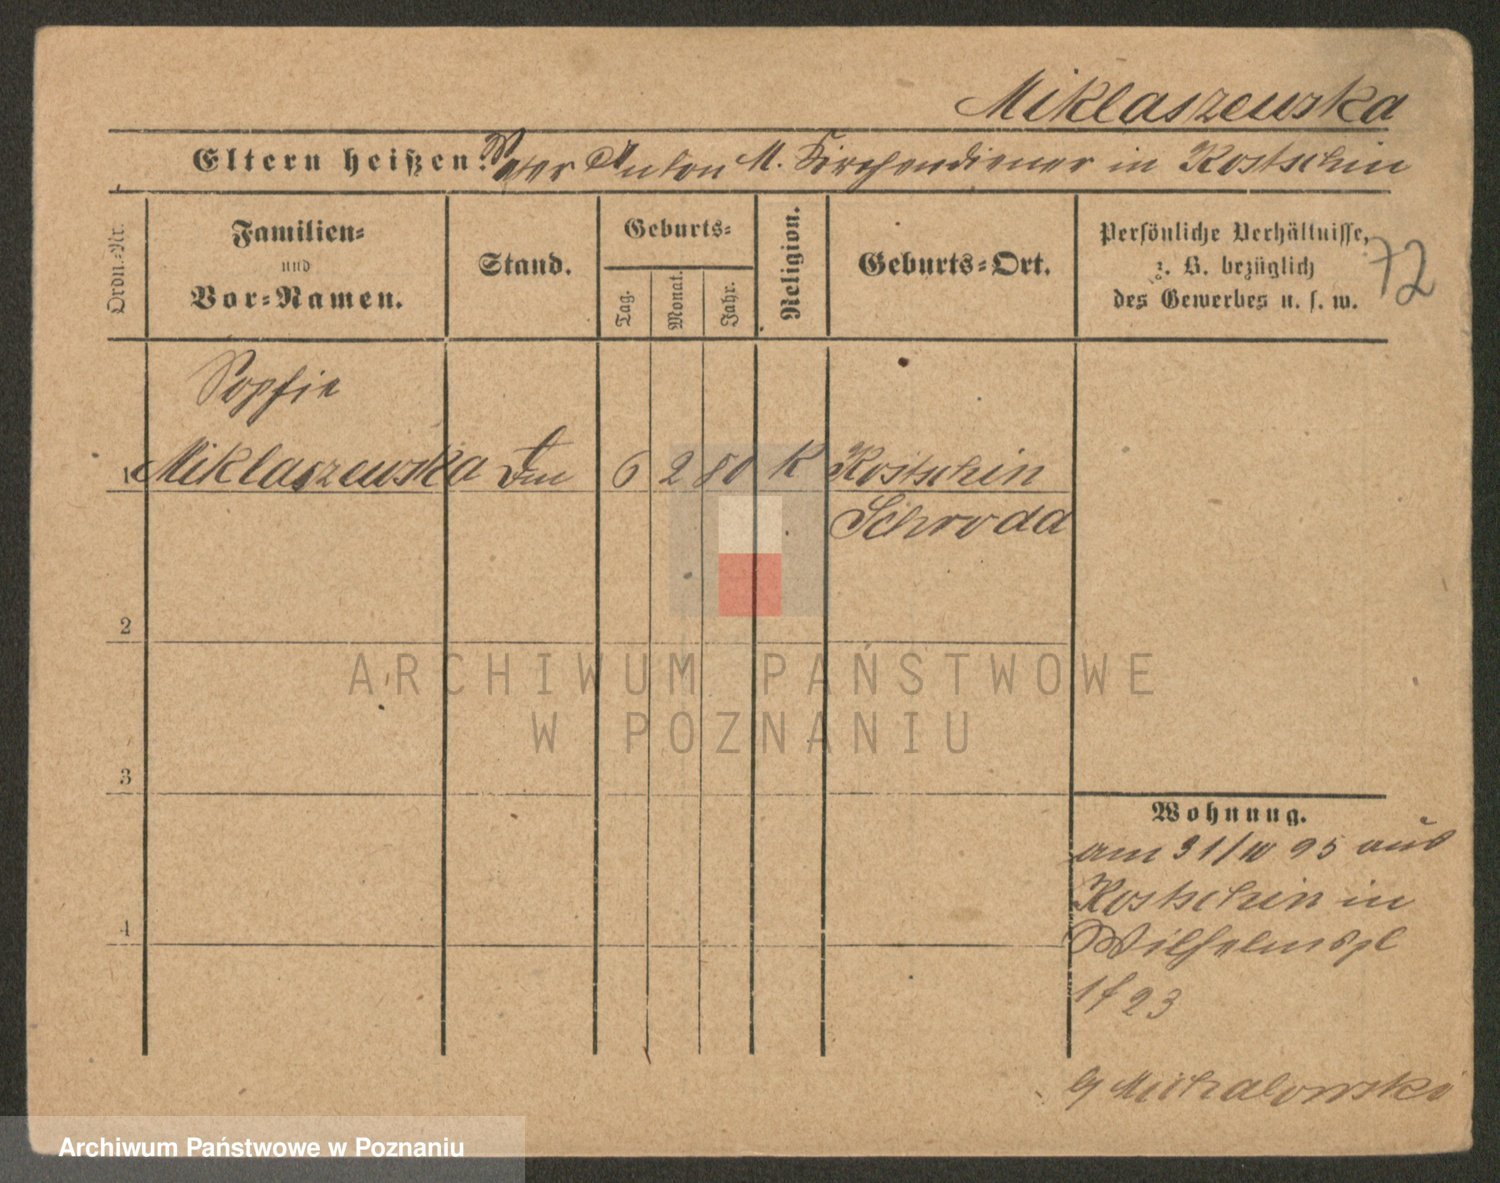 Miklaszewska
Eltern heißen: Vater Anton M. Kirchendiener in Kostschin
Ordn.-Nr.
Familien-
und
Vor-Namen.
Stand.
Geburts-
Tag.
Monat.
Jahr.
Religion.
Geburts-Ort.
Persönliche Verhältnisse,
z. B. bezüglich
des Gewerbes u. s. w.
72
Sophie
1 Miklaszewska 6 2 80 K Kostschin
Schroda
2
3
4
Wohnung.
am 31/10 95 aus
Kostschin in
Wilhelmspl
23
Michalowski
ARCHIWUM PAŃSTWOWE
W POZNANIU
Archiwum Państwowe w Poznaniu